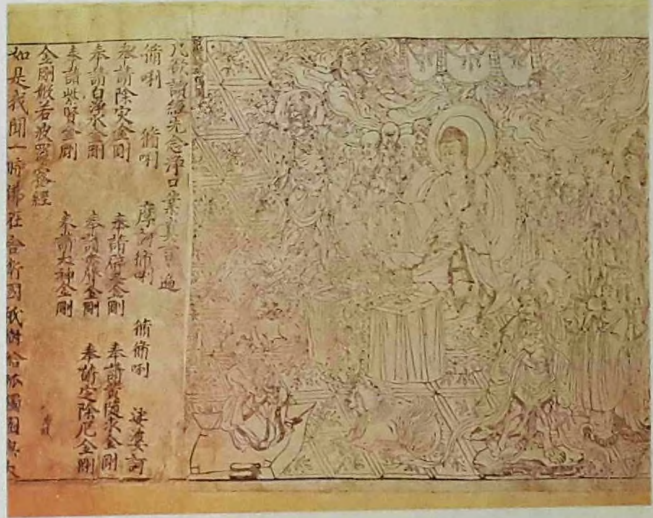 凡欲讀經先念淨口業真言遍
脩唎 脩唎 摩訶脩唎 脩脩唎 娑婆訶
奉請除灾金剛 奉請辟毒金剛 奉請黃随求金剛
奉請白淨水金剛 奉請金剛 奉請定除厄金剛
奉請紫賢金剛 奉請大神金剛
金剛般若波羅蜜經
如是我聞一時佛在舍衛國祇樹給孤獨園與大